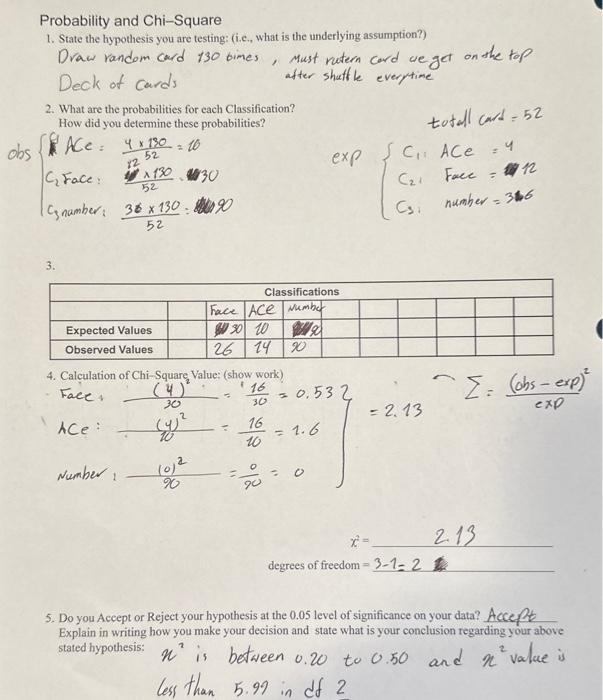 Probability and Chi–Square
1. State the hypothesis you are testing: (i.e., what is the underlying assumption?)
Draw random card 130 times , Must rutern card we get on the top
Deck of Cards after shuttle everytime
2. What are the probabilities for each Classification?
How did you determine these probabilities?
totall card = 52
obs C1 ACe : 4 x 130 / 52 = 10
C2 Face : 12 x 130 / 52 = 30
C3 number : 36 x 130 / 52 = 90
exp C1: ACe = 4
C2: Face = 12
C3: number = 36
3.
Classifications
Face ACe Number
Expected Values 30 10 90
Observed Values 26 14 90
4. Calculation of Chi–Square Value: (show work)
Face : (4)² / 30 = 16 / 30 = 0.532
ACe : (4)² / 10 = 16 / 10 = 1.6
Number : (0)² / 90 = 0 / 90 = 0
= 2.13
Σ = (obs - exp)² / exp
x² = 2.13
degrees of freedom = 3-1= 2
5. Do you Accept or Reject your hypothesis at the 0.05 level of significance on your data? Accept
Explain in writing how you make your decision and state what is your conclusion regarding your above
stated hypothesis: x² is between 0.20 to 0.50 and x² value is
less than 5.99 in df 2